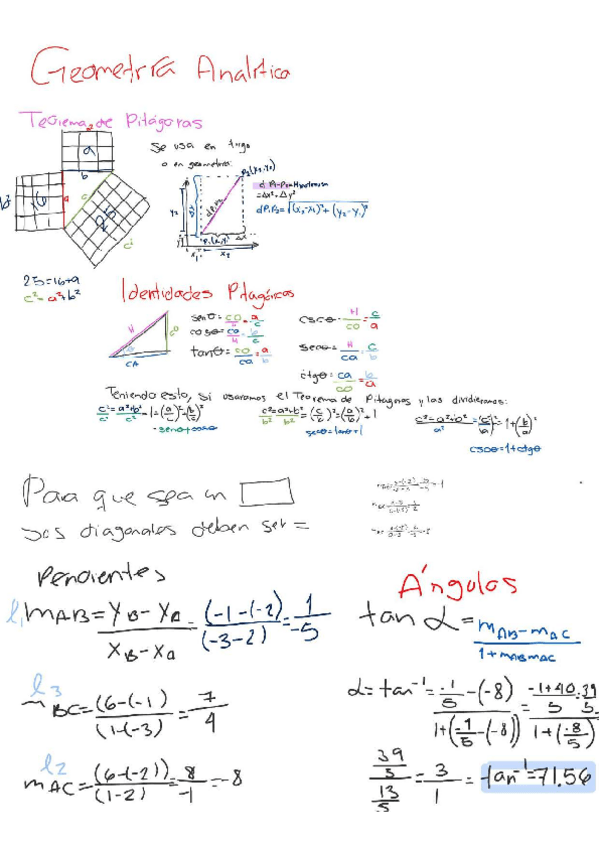 Geometría Analítica
Teorema de Pitágoras
Se usa en trigo
o en geometría:
a
b
c
25
c²
P₂(x₂,y₂)
d P₁-P₂=Hipotenusa
=Δx²+Δy²
dP₁P₂=√(x₂-x₁)²+(y₂-y₁)²
dP₁P₂
P₁(x₁,y₁) Δx
y₂
x₁ x₂
25=16+9
c²=a²+b²
Identidades Pitagóricas
H
CO
CA
senθ=CO/H=a/c
cosθ=CA/H=b/c
tanθ=CO/CA=a/b
cscθ=H/CO=c/a
secθ=H/CA=c/b
ctgθ=CA/CO=b/a
Teniendo esto, si usaramos el Teorema de Pitagoras y las dividieramos:
c²=a²+b²/c²=1=(a/c)²+(b/c)²
=senθ+cosθ
c²=a²+b²/b²=(c/b)²=(a/b)²+1
secθ=tanθ+1
c²=a²+b²/a²=(c/a)²=1+(b/a)²
cscθ=1+ctgθ
Para que sea un
sus diagonales deben ser =
Pendientes
l₁ mAB=yB-yA/xB-xA=(-1-(-2))/(-3-2)=1/-5
l3
mBC=(6-(-1))/(1-(-3))=7/4
l2
mAC=(6-(-2))/(1-2)=8/-1=-8
Ángulos
tan α=mAB-mAC/1+mABmAC
α=tan⁻¹=-1/5-(-8)/1+(-1/5-(-8))=-1+40/5=39/5/1+(8/5)
39/5/13/5=3/1=tan⁻¹=71.56